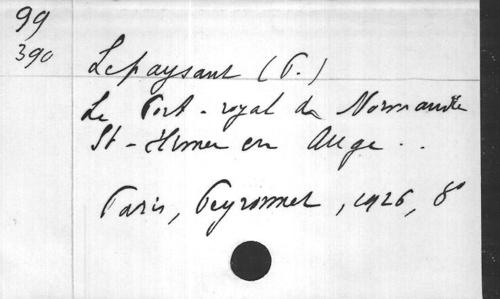 99
390
Lepaysant (P.)
Le Port-royal de Normandie
St-Himer en Auge . .
Paris, Peyronnet, 1926, 8°